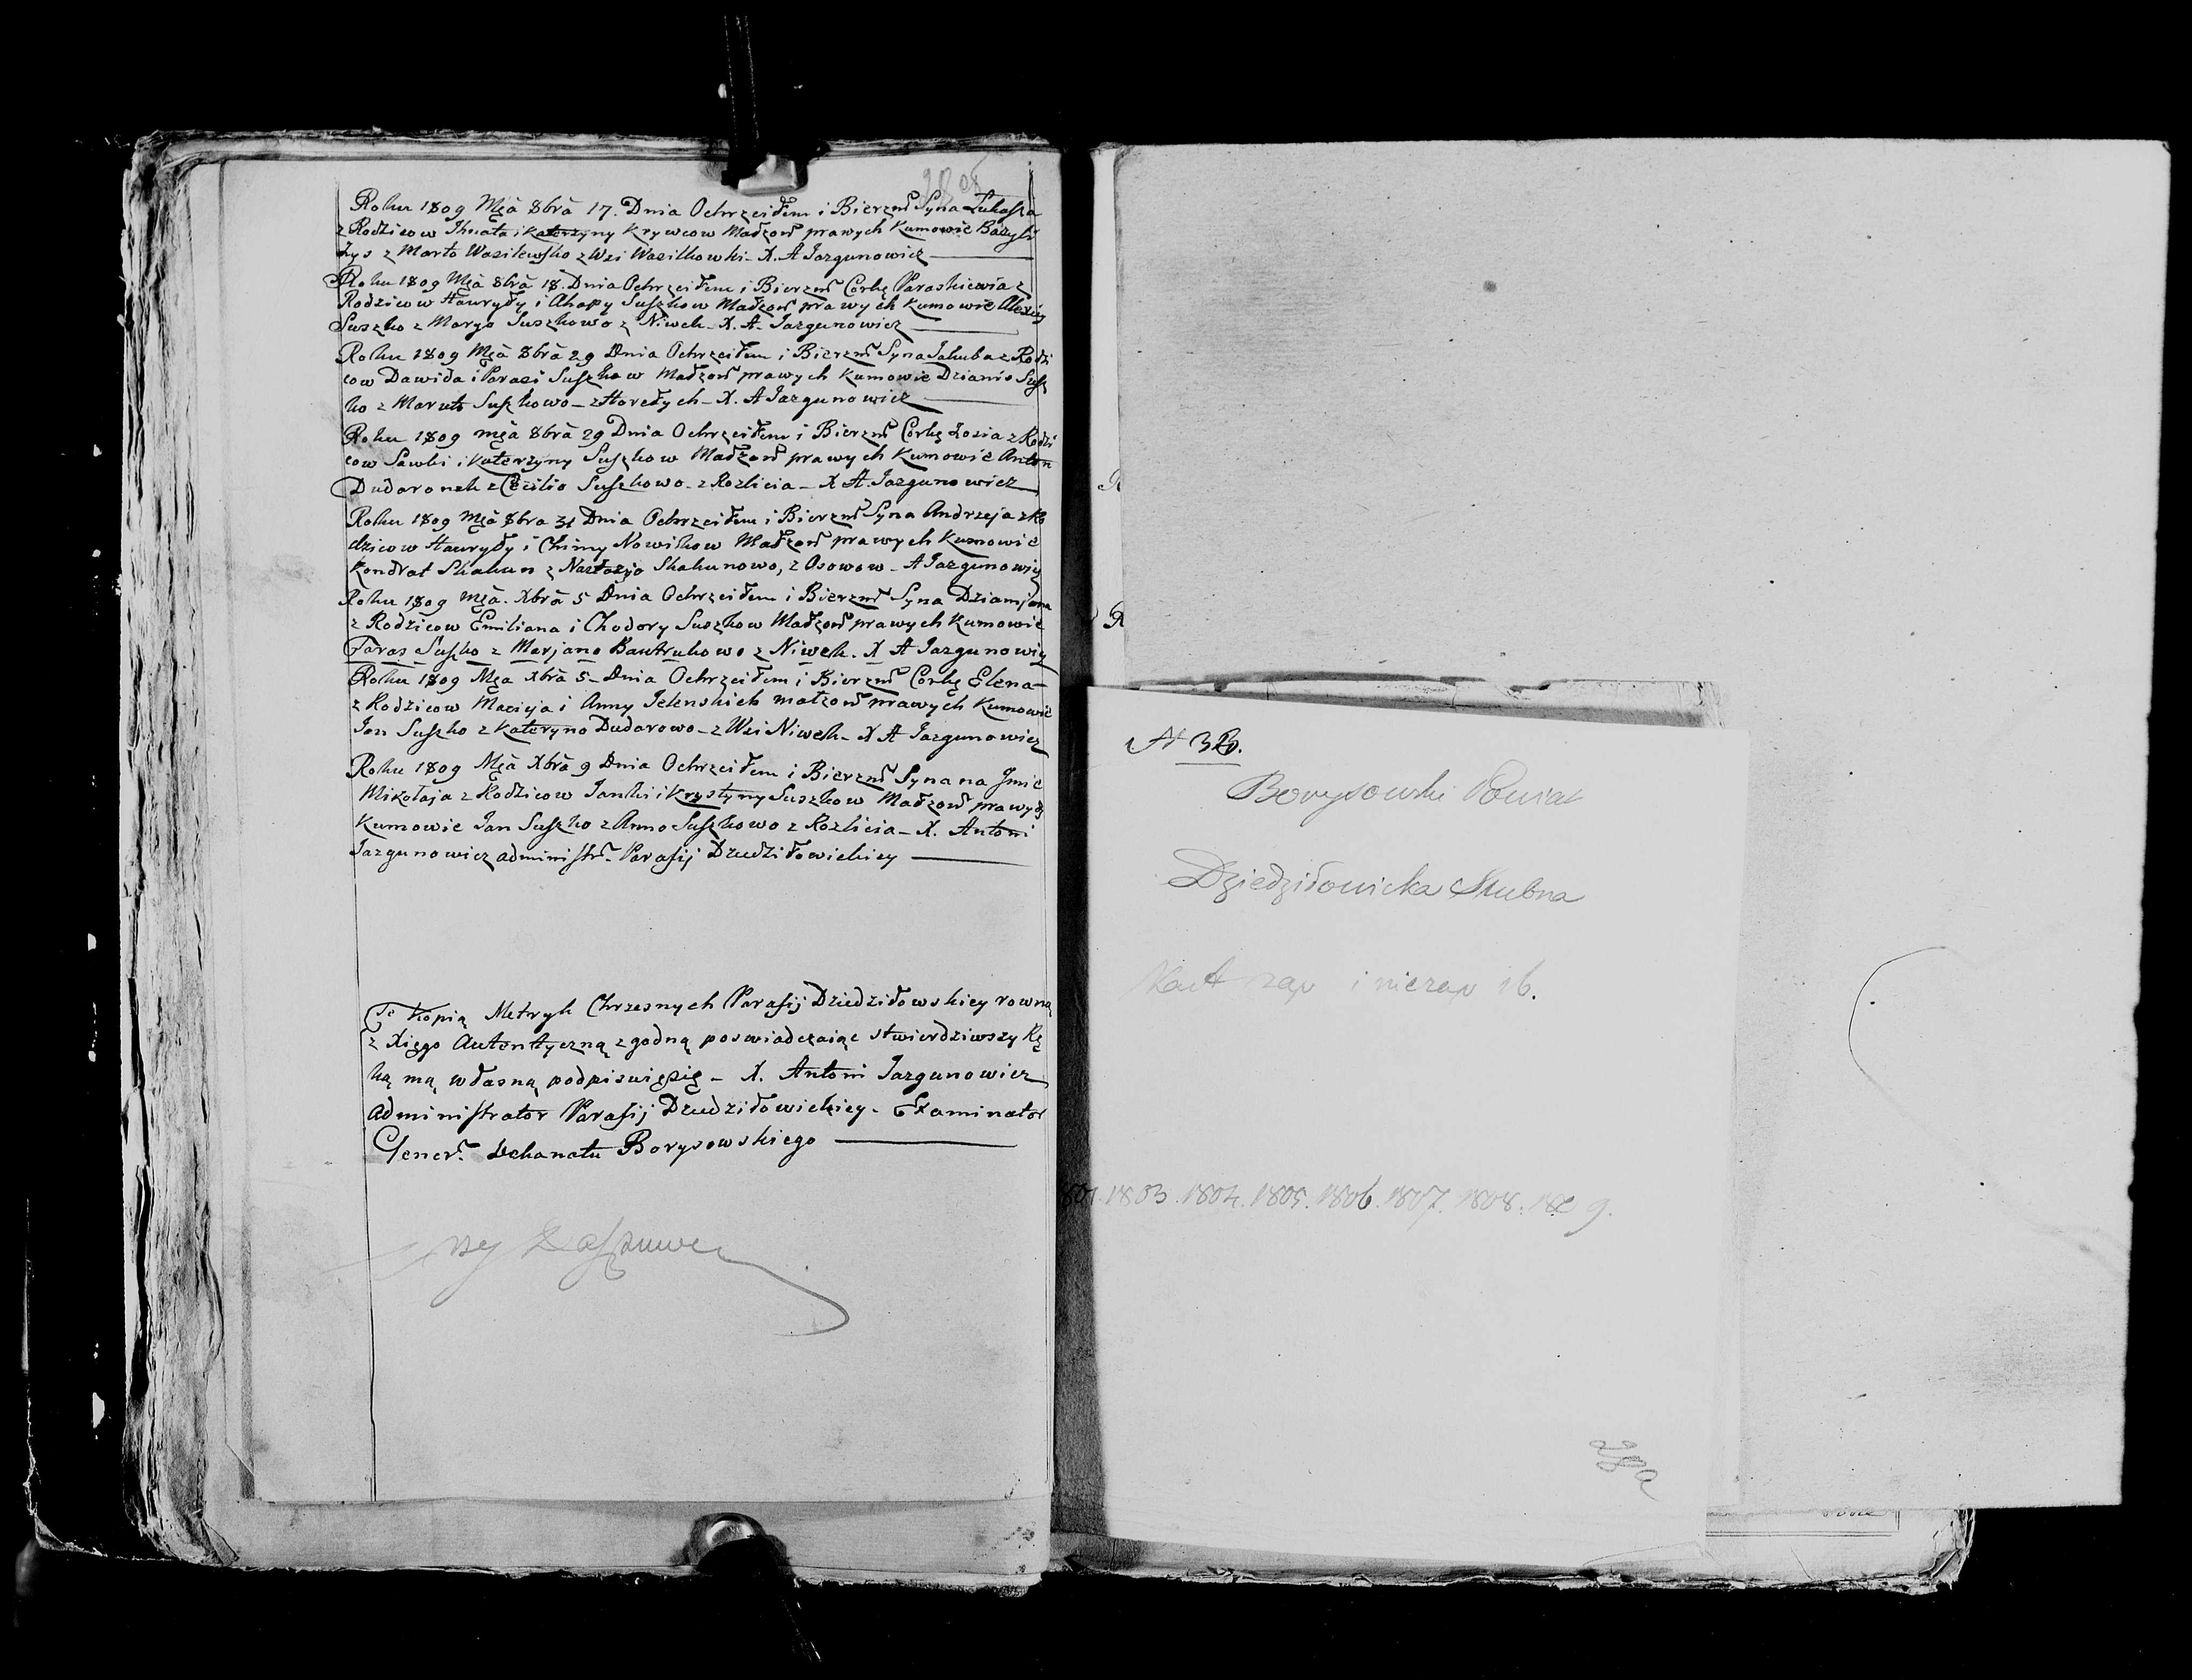 Roku 1809 Mcā 8brā 17. Dnia Ochrzciłem i Bierzmł Syna Łukasza
z Rodzicow Ihnata i Katerzyny Krywcow Małżonł prawych Kumowie Bazyli
Łys z Marto Wasilewsko z Wsi Wasilkowki - X. A Jazgunowicz
Roku 1809 Mcā 8brā 18. Dnia Ochrzciłem i Bierzmł Corkę Paraskiewia z
Rodzicow Hawryły i Ahapy Suszkow Małżonł prawych Kumowie Alexiey
Suszko z Maryo Suszkowo z Niwek - X. A. Jazgunowicz
Roku 1809 Mcā 8brā 29 Dnia Ochrzciłem i Bierzmł Syna Jakuba z Rodzi
cow Dawida i Parasi Suszkow Małżonł prawych Kumowie Dzianis Susz
ko z Maruto Suszkowo - z Horełych - X. A Jazgunowicz
Roku 1809 mcā 8brā 29 Dnia Ochrzciłem i Bierzmł Corkę Zosia z Rodzi
cow Sawki i Katerzyny Suszkow Małżonł prawych Kumowie Anton
Dudaronek z Cecilio Suszkowo - z Rozlicia - X A Jazgunowicz
Roku 1809 Mcā 8bra 31 Dnia Ochrzciłem i Bierzmł Syna Andrzeja z Ro
dzicow Hawryły i Chimy Nowikow Małżonł prawych Kumowie
Kondrat Skakun z Nastazyo Skakunowo, z Osowow - A Jazgunowicz
Roku 1809 Mcā. Xbrā 5 Dnia Ochrzciłem i Bierzmł Syna Dziamjana
z Rodzicow Emiliana i Chodory Suszkow Małżonł prawych Kumowie
Taras Suszko z Marjano Bautrukowo z Niwek. X A Jazgunowicz
Roku 1809 Mca Xbrā 5 - Dnia Ochrzciłem i Bierzmł Corkę Elena
z Rodzicow Macieja i Anny Jelenskich małżonł prawych Kumowie
Jan Suszko z Kateryno Dudarowo - z Wsi Niwek - X A Jazgunowicz
Roku 1809 Mcā Xbrā 9 Dnia Ochrzciłem i Bierzmł Syna na Jmie
Mikołaja z Rodzicow Janki i Krystyny Suszkow Małżonł prawych
Kumowie Jan Suszko z Anno Suszkowo z Rozlicia - X. Antoni
Jazgunowicz administr. Parafij Dziedziłowickiey
Te Kopią Metryk Chrzesnych Parafij Dziedziłowskiey rowną
z Xięgo Autentyczną zgodną poswiadczaiąc stwierdziwszy Rę
ką mą własną podpisuięsię - X. Antoni Jazgunowicz
administrator Parafij Dziedziłowickiey - Examinator
Generł. Dekanatu Borysowskiego
N 3B.
Borysowski Powiat
Dziedziłowicka Slubna
Kart zap i niezap 16.
1803. 1804. 1805. 1806. 1807. 1808. 180 9.